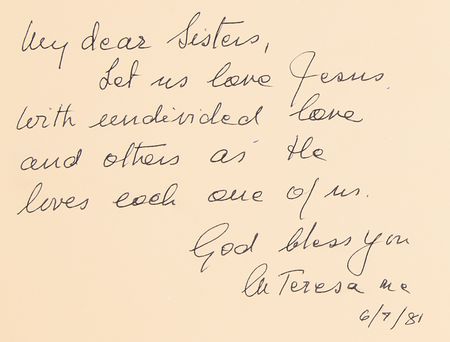 My dear Sisters,
Let us love Jesus
with undivided love
and others as He
loves each one of us.
God bless you
M Teresa mc
6/7/81